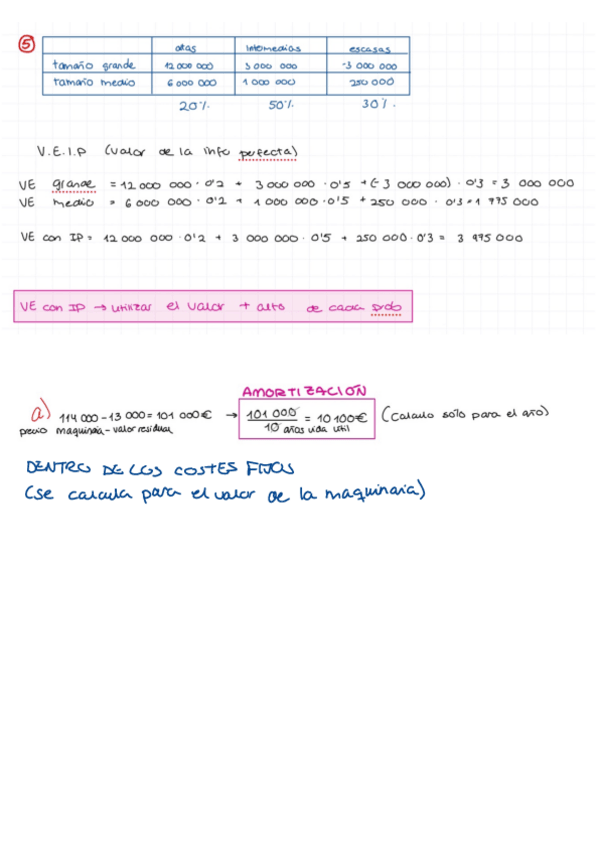 5 altas Intermedias escasas
tamaño grande 12 000 000 3 000 000 -3 000 000
tamaño medio 6 000 000 1 000 000 250 000
20% 50% 30%.
V.E.I.P (valor de la info perfecta)
VE grande = 12 000 000 · 0'2 + 3 000 000 · 0'5 + (-3 000 000) · 0'3 = 3 000 000
VE medio = 6 000 000 · 0'2 + 1 000 000 · 0'5 + 250 000 · 0'3 = 1 775 000
VE con IP = 12 000 000 · 0'2 + 3 000 000 · 0'5 + 250 000 · 0'3 = 3 975 000
VE con IP → utilizar el valor + alto de cada prob
AMORTIZACIÓN
a) 114 000 - 13 000 = 101 000 € → 101 000 / 10 años vida útil = 10 100 € (Calculo sólo para el año)
precio maquinaria - valor residual
DENTRO DE LOS COSTES FIJOS
(se calcula para el valor de la maquinaria)